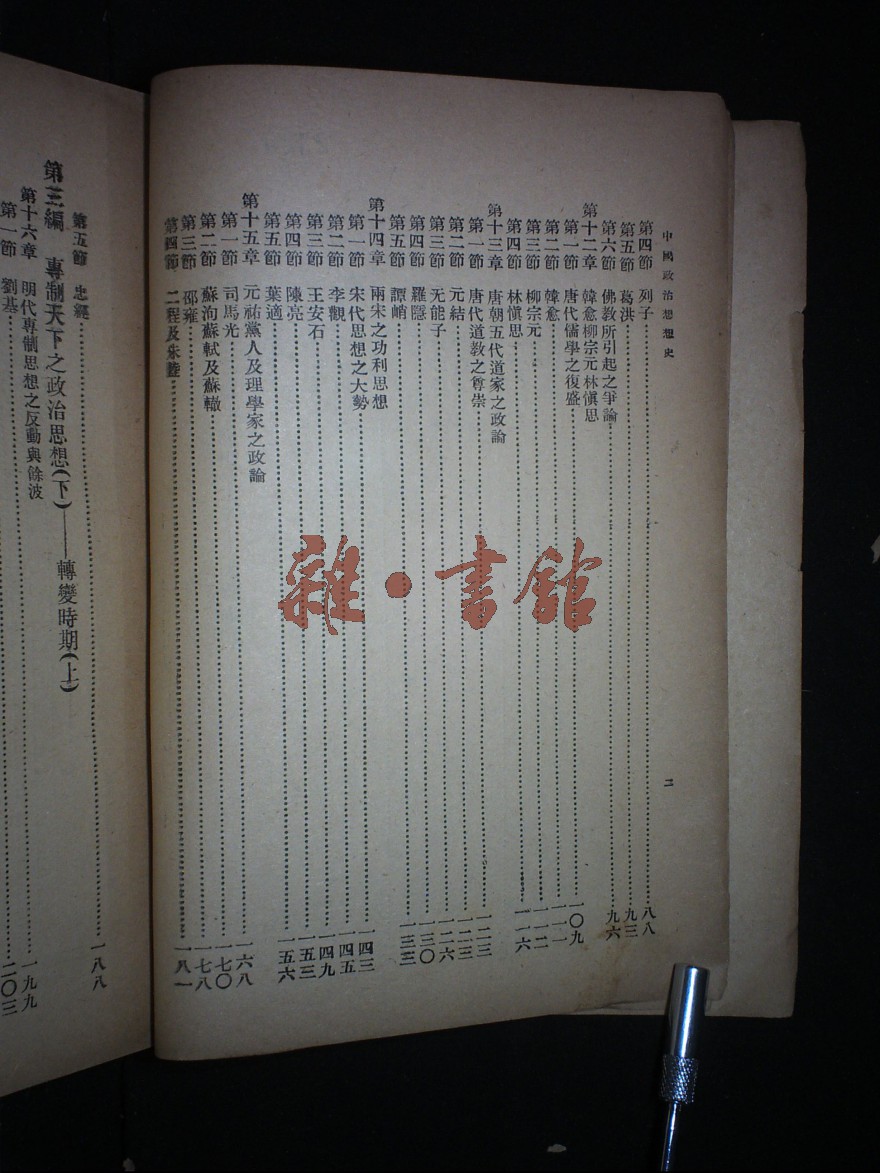 中國政治思想史 二
第四節 列子……八八
第五節 葛洪……九三
第六節 佛教所引起之爭論……九六
第十二章 韓愈柳宗元林慎思
第一節 唐代儒學之復盛……一〇九
第二節 韓愈……一一一
第三節 柳宗元……一一二
第四節 林慎思……一一六
第十三章 唐朝五代道家之政論
第一節 唐代道教之尊崇……一二三
第二節 元結……一二三
第三節 无能子……一二六
第四節 羅隱……一三〇
第五節 譚峭……一三三
第十四章 兩宋之功利思想
第一節 宋代思想之大勢……一四三
第二節 李覯……一四五
第三節 王安石……一四九
第四節 陳亮……一五三
第五節 葉適……一五六
第十五章 元祐黨人及理學家之政論
第一節 司馬光……一六八
第二節 蘇洵蘇軾及蘇轍……一七〇
第三節 邵雍……一七八
第四節 二程及朱陸……一八一
第五節 忠經……一八八
第三編 專制天下之政治思想(下)——轉變時期(上)
第十六章 明代專制思想之反動與餘波……一九九
第一節 劉基……二〇三
雜·書館